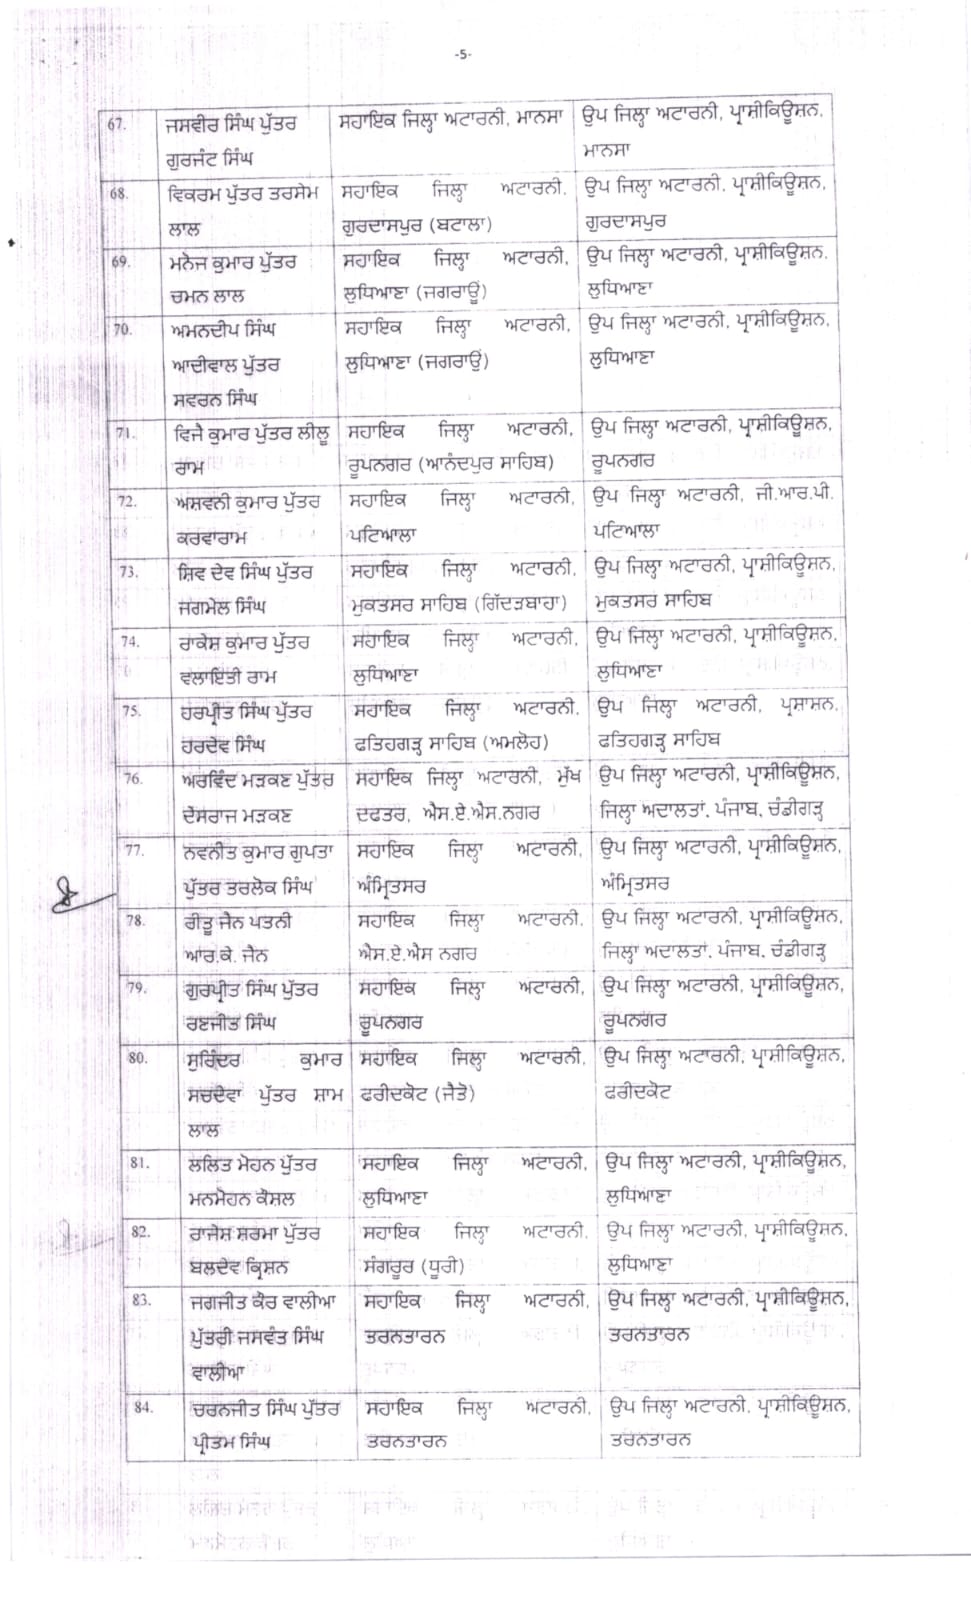 -5-
67. ਜਸਵੀਰ ਸਿੰਘ ਪੁੱਤਰ ਸਹਾਇਕ ਜਿਲ੍ਹਾ ਅਟਾਰਨੀ, ਮਾਨਸਾ ਉਪ ਜਿਲ੍ਹਾ ਅਟਾਰਨੀ, ਪ੍ਰਾਸੀਕਿਊਸ਼ਨ,
ਗੁਰਜੰਟ ਸਿੰਘ ਮਾਨਸਾ
68. ਵਿਕਰਮ ਪੁੱਤਰ ਤਰਸੇਮ ਸਹਾਇਕ ਜਿਲ੍ਹਾ ਅਟਾਰਨੀ, ਉਪ ਜਿਲ੍ਹਾ ਅਟਾਰਨੀ, ਪ੍ਰਾਸੀਕਿਊਸ਼ਨ,
ਲਾਲ ਗੁਰਦਾਸਪੁਰ (ਬਟਾਲਾ) ਗੁਰਦਾਸਪੁਰ
69. ਮਨੋਜ ਕੁਮਾਰ ਪੁੱਤਰ ਸਹਾਇਕ ਜਿਲ੍ਹਾ ਅਟਾਰਨੀ, ਉਪ ਜਿਲ੍ਹਾ ਅਟਾਰਨੀ, ਪ੍ਰਾਸੀਕਿਊਸ਼ਨ,
ਚਮਨ ਲਾਲ ਲੁਧਿਆਣਾ (ਜਗਰਾਉਂ) ਲੁਧਿਆਣਾ
70. ਅਮਨਦੀਪ ਸਿੰਘ ਸਹਾਇਕ ਜਿਲ੍ਹਾ ਅਟਾਰਨੀ, ਉਪ ਜਿਲ੍ਹਾ ਅਟਾਰਨੀ, ਪ੍ਰਾਸੀਕਿਊਸ਼ਨ,
ਆਦੀਵਾਲ ਪੁੱਤਰ ਲੁਧਿਆਣਾ (ਜਗਰਾਉਂ) ਲੁਧਿਆਣਾ
ਸਵਰਨ ਸਿੰਘ
71. ਵਿਜੈ ਕੁਮਾਰ ਪੁੱਤਰ ਲੀਲੂ ਸਹਾਇਕ ਜਿਲ੍ਹਾ ਅਟਾਰਨੀ, ਉਪ ਜਿਲ੍ਹਾ ਅਟਾਰਨੀ, ਪ੍ਰਾਸੀਕਿਊਸ਼ਨ,
ਰਾਮ ਰੂਪਨਗਰ (ਆਨੰਦਪੁਰ ਸਾਹਿਬ) ਰੂਪਨਗਰ
72. ਅਸ਼ਵਨੀ ਕੁਮਾਰ ਪੁੱਤਰ ਸਹਾਇਕ ਜਿਲ੍ਹਾ ਅਟਾਰਨੀ, ਉਪ ਜਿਲ੍ਹਾ ਅਟਾਰਨੀ, ਜੀ.ਆਰ.ਪੀ.
ਕਰਵਾਰਾਮ ਪਟਿਆਲਾ ਪਟਿਆਲਾ
73. ਸ਼ਿਵ ਦੇਵ ਸਿੰਘ ਪੁੱਤਰ ਸਹਾਇਕ ਜਿਲ੍ਹਾ ਅਟਾਰਨੀ, ਉਪ ਜਿਲ੍ਹਾ ਅਟਾਰਨੀ, ਪ੍ਰਾਸੀਕਿਊਸ਼ਨ,
ਜਗਮੇਲ ਸਿੰਘ ਮੁਕਤਸਰ ਸਾਹਿਬ (ਗਿੱਦੜਬਾਹਾ) ਮੁਕਤਸਰ ਸਾਹਿਬ
74. ਰਾਕੇਸ਼ ਕੁਮਾਰ ਪੁੱਤਰ ਸਹਾਇਕ ਜਿਲ੍ਹਾ ਅਟਾਰਨੀ, ਉਪ ਜਿਲ੍ਹਾ ਅਟਾਰਨੀ, ਪ੍ਰਾਸੀਕਿਊਸ਼ਨ,
ਵਲਾਇਤੀ ਰਾਮ ਲੁਧਿਆਣਾ ਲੁਧਿਆਣਾ
75. ਹਰਪ੍ਰੀਤ ਸਿੰਘ ਪੁੱਤਰ ਸਹਾਇਕ ਜਿਲ੍ਹਾ ਅਟਾਰਨੀ, ਉਪ ਜਿਲ੍ਹਾ ਅਟਾਰਨੀ, ਪ੍ਰਸ਼ਾਸਨ,
ਹਰਦੇਵ ਸਿੰਘ ਫਤਿਹਗੜ੍ਹ ਸਾਹਿਬ (ਅਮਲੋਹ) ਫਤਿਹਗੜ੍ਹ ਸਾਹਿਬ
76. ਅਰਵਿੰਦ ਮੜਕਣ ਪੁੱਤਰ ਸਹਾਇਕ ਜਿਲ੍ਹਾ ਅਟਾਰਨੀ, ਮੁੱਖ ਉਪ ਜਿਲ੍ਹਾ ਅਟਾਰਨੀ, ਪ੍ਰਾਸੀਕਿਊਸ਼ਨ,
ਦੇਸਰਾਜ ਮੜਕਣ ਦਫਤਰ, ਐਸ.ਏ.ਐਸ.ਨਗਰ ਜਿਲ੍ਹਾ ਅਦਾਲਤਾਂ, ਪੰਜਾਬ, ਚੰਡੀਗੜ੍ਹ
77. ਨਵਨੀਤ ਕੁਮਾਰ ਗੁਪਤਾ ਸਹਾਇਕ ਜਿਲ੍ਹਾ ਅਟਾਰਨੀ, ਉਪ ਜਿਲ੍ਹਾ ਅਟਾਰਨੀ, ਪ੍ਰਾਸੀਕਿਊਸ਼ਨ,
ਪੁੱਤਰ ਤਰਲੋਕ ਸਿੰਘ ਅੰਮ੍ਰਿਤਸਰ ਅੰਮ੍ਰਿਤਸਰ
78. ਰੀਤੂ ਜੈਨ ਪਤਨੀ ਸਹਾਇਕ ਜਿਲ੍ਹਾ ਅਟਾਰਨੀ, ਉਪ ਜਿਲ੍ਹਾ ਅਟਾਰਨੀ, ਪ੍ਰਾਸੀਕਿਊਸ਼ਨ,
ਆਰ.ਕੇ. ਜੈਨ ਐਸ.ਏ.ਐਸ ਨਗਰ ਜਿਲ੍ਹਾ ਅਦਾਲਤਾਂ, ਪੰਜਾਬ, ਚੰਡੀਗੜ੍ਹ
79. ਗੁਰਪ੍ਰੀਤ ਸਿੰਘ ਪੁੱਤਰ ਸਹਾਇਕ ਜਿਲ੍ਹਾ ਅਟਾਰਨੀ, ਉਪ ਜਿਲ੍ਹਾ ਅਟਾਰਨੀ, ਪ੍ਰਾਸੀਕਿਊਸ਼ਨ,
ਰਣਜੀਤ ਸਿੰਘ ਰੂਪਨਗਰ ਰੂਪਨਗਰ
80. ਸੁਰਿੰਦਰ ਕੁਮਾਰ ਸਹਾਇਕ ਜਿਲ੍ਹਾ ਅਟਾਰਨੀ, ਉਪ ਜਿਲ੍ਹਾ ਅਟਾਰਨੀ, ਪ੍ਰਾਸੀਕਿਊਸ਼ਨ,
ਸਚਦੇਵਾ ਪੁੱਤਰ ਸ਼ਾਮ ਫਰੀਦਕੋਟ (ਜੈਤੋ) ਫਰੀਦਕੋਟ
ਲਾਲ
81. ਲਲਿਤ ਮੋਹਨ ਪੁੱਤਰ ਸਹਾਇਕ ਜਿਲ੍ਹਾ ਅਟਾਰਨੀ, ਉਪ ਜਿਲ੍ਹਾ ਅਟਾਰਨੀ, ਪ੍ਰਾਸੀਕਿਊਸ਼ਨ,
ਮਨਮੋਹਨ ਕੋਸ਼ਲ ਲੁਧਿਆਣਾ ਲੁਧਿਆਣਾ
82. ਰਾਜੇਸ਼ ਸ਼ਰਮਾ ਪੁੱਤਰ ਸਹਾਇਕ ਜਿਲ੍ਹਾ ਅਟਾਰਨੀ, ਉਪ ਜਿਲ੍ਹਾ ਅਟਾਰਨੀ, ਪ੍ਰਾਸੀਕਿਊਸ਼ਨ,
ਬਲਦੇਵ ਕ੍ਰਿਸ਼ਨ ਸੰਗਰੂਰ (ਧੂਰੀ) ਲੁਧਿਆਣਾ
83. ਜਗਜੀਤ ਕੌਰ ਵਾਲੀਆ ਸਹਾਇਕ ਜਿਲ੍ਹਾ ਅਟਾਰਨੀ, ਉਪ ਜਿਲ੍ਹਾ ਅਟਾਰਨੀ, ਪ੍ਰਾਸੀਕਿਊਸ਼ਨ,
ਪੁੱਤਰੀ ਜਸਵੰਤ ਸਿੰਘ ਤਰਨਤਾਰਨ ਤਰਨਤਾਰਨ
ਵਾਲੀਆ
84. ਚਰਨਜੀਤ ਸਿੰਘ ਪੁੱਤਰ ਸਹਾਇਕ ਜਿਲ੍ਹਾ ਅਟਾਰਨੀ, ਉਪ ਜਿਲ੍ਹਾ ਅਟਾਰਨੀ, ਪ੍ਰਾਸੀਕਿਊਸ਼ਨ,
ਪ੍ਰੀਤਮ ਸਿੰਘ ਤਰਨਤਾਰਨ ਤਰਨਤਾਰਨ